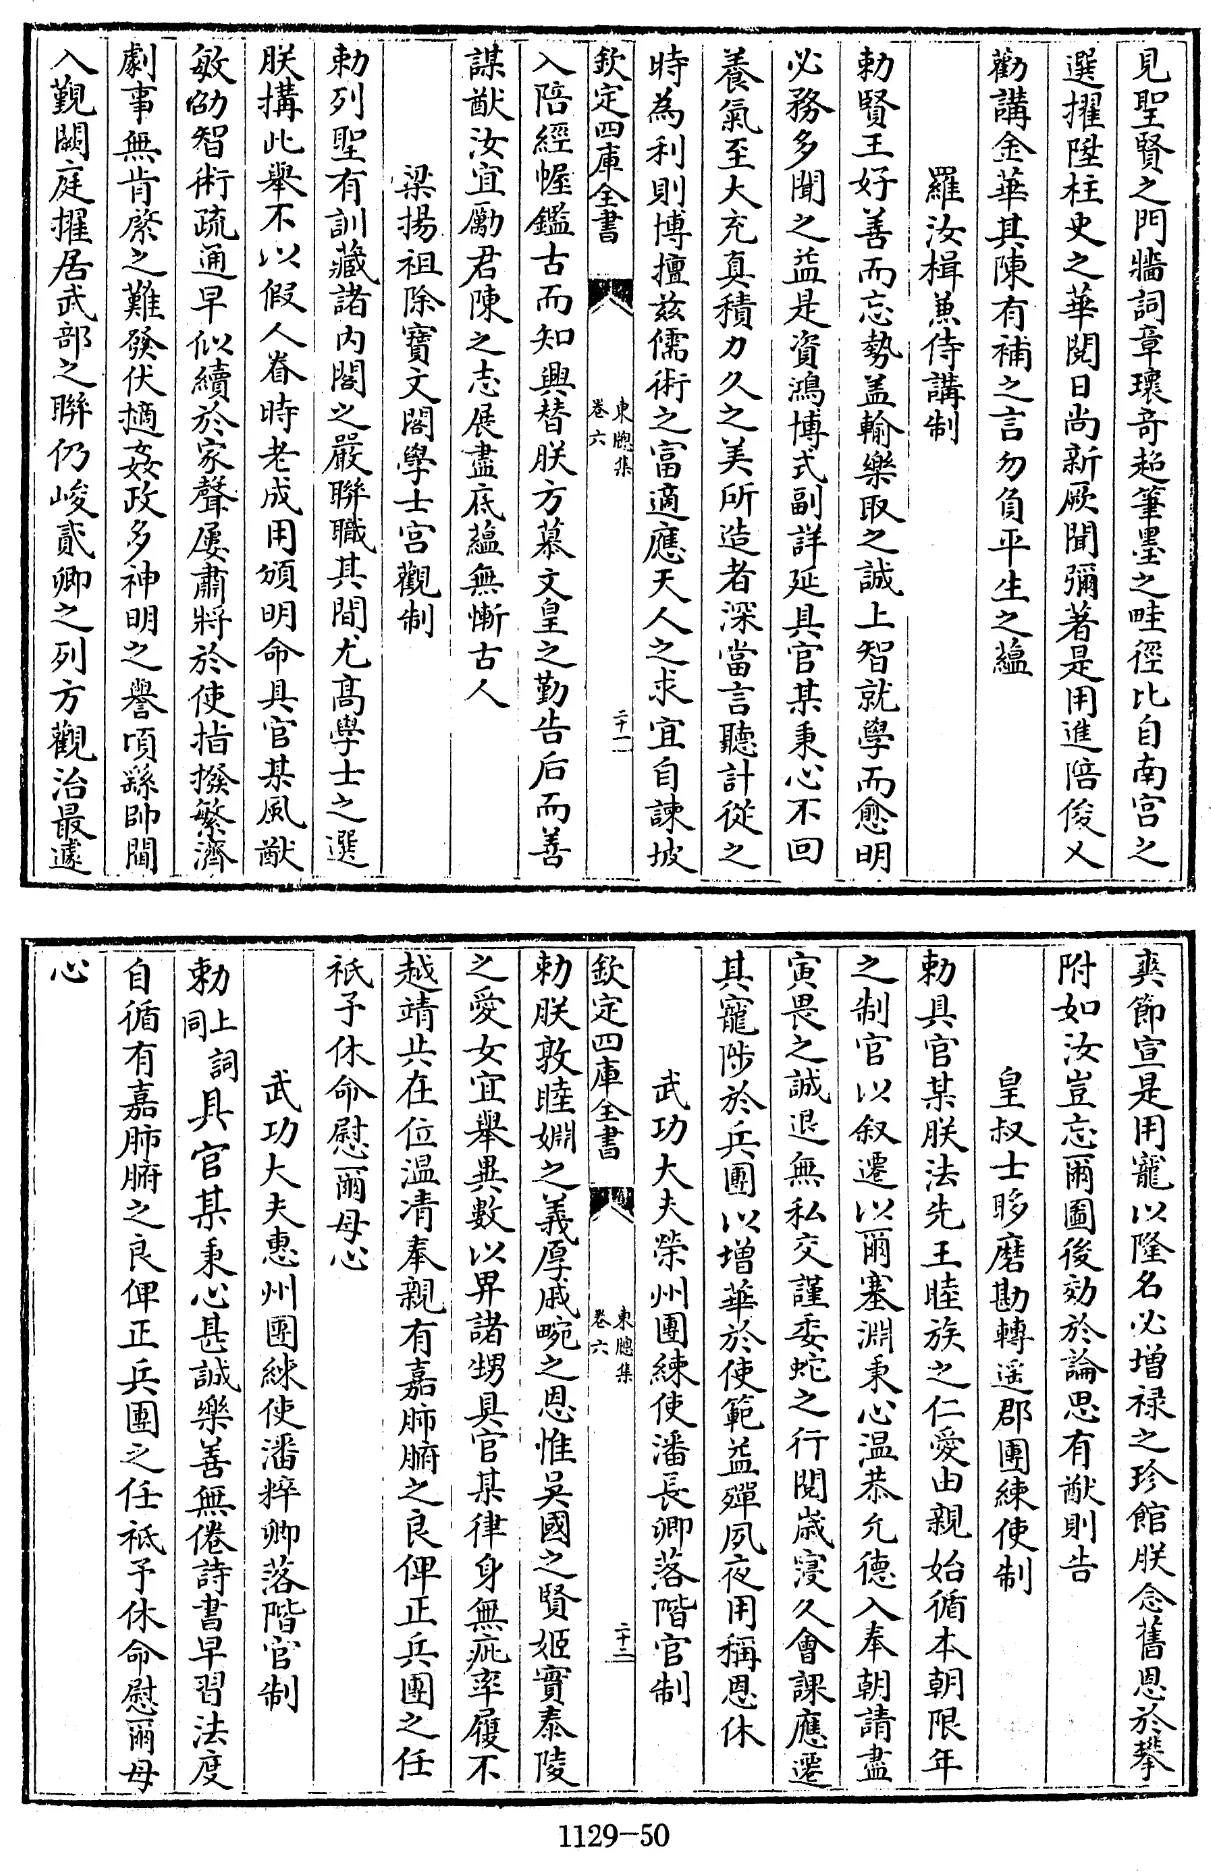 見聖賢之門牆詞章瓌奇超筆墨之畦徑比自南宫之
選擢陞柱史之華閱日尚新厥聞彌著是用進陪俊乂
勸講金華其陳有補之言勿負平生之藴
羅汝楫兼侍講制
勅賢王好善而忘勢盖輸樂取之誠上智就學而愈明
必務多聞之益是資鴻博式副詳延具官某秉心不回
養氣至大充真積力久之美所造者深當言聽計從之
時為利則博擅兹儒術之富適應天人之求宜自諫坡
欽定四庫全書
東牕集
卷六
二十一
入陪經幄鑑古而知興替朕方慕文皇之勤告后而善
謀猷汝宜勵君陳之志展盡底藴無慚古人
梁揚祖除寳文閣學士宫觀制
勅列聖有訓藏諸内閣之嚴聯職其間尤髙學士之選
朕搆此舉不以假人眷時老成用頒明命具官某風猷
敏劭智術疏通早似續於家聲屢肅將於使指撥繁濟
劇事無肯綮之難發伏擿姦政多神明之譽頃繇帥閫
入覲闕庭擢居武部之聯仍峻貳卿之列方觀治最遽
爽節宣是用寵以隆名必增禄之珍館朕念舊恩於攀
附如汝豈忘爾圖後効於論思有猷則告
皇叔士㒟磨勘轉遥郡團練使制
勅具官某朕法先王睦族之仁愛由親始循本朝限年
之制官以叙遷以爾塞淵秉心温恭允德入奉朝請盡
寅畏之誠退無私交謹委蛇之行閱歳寖久會課應遷
其寵陟於兵團以增華於使範益殫夙夜用稱恩休
武功大夫榮州團練使潘長卿落階官制
欽定四庫全書
東牕集
卷六
二十二
勅朕敦睦婣之義厚戚畹之恩惟吳國之賢姬實泰陵
之愛女宜舉異數以畀諸甥具官某律身無疵率履不
越靖共在位温清奉親有嘉肺腑之良俾正兵團之任
祇予休命慰爾母心
武功大夫惠州團練使潘粹卿落階官制
勅上詞同具官某秉心甚誠樂善無倦詩書早習法度
自循有嘉肺腑之良俾正兵團之任祇予休命慰爾母
心
1129-50